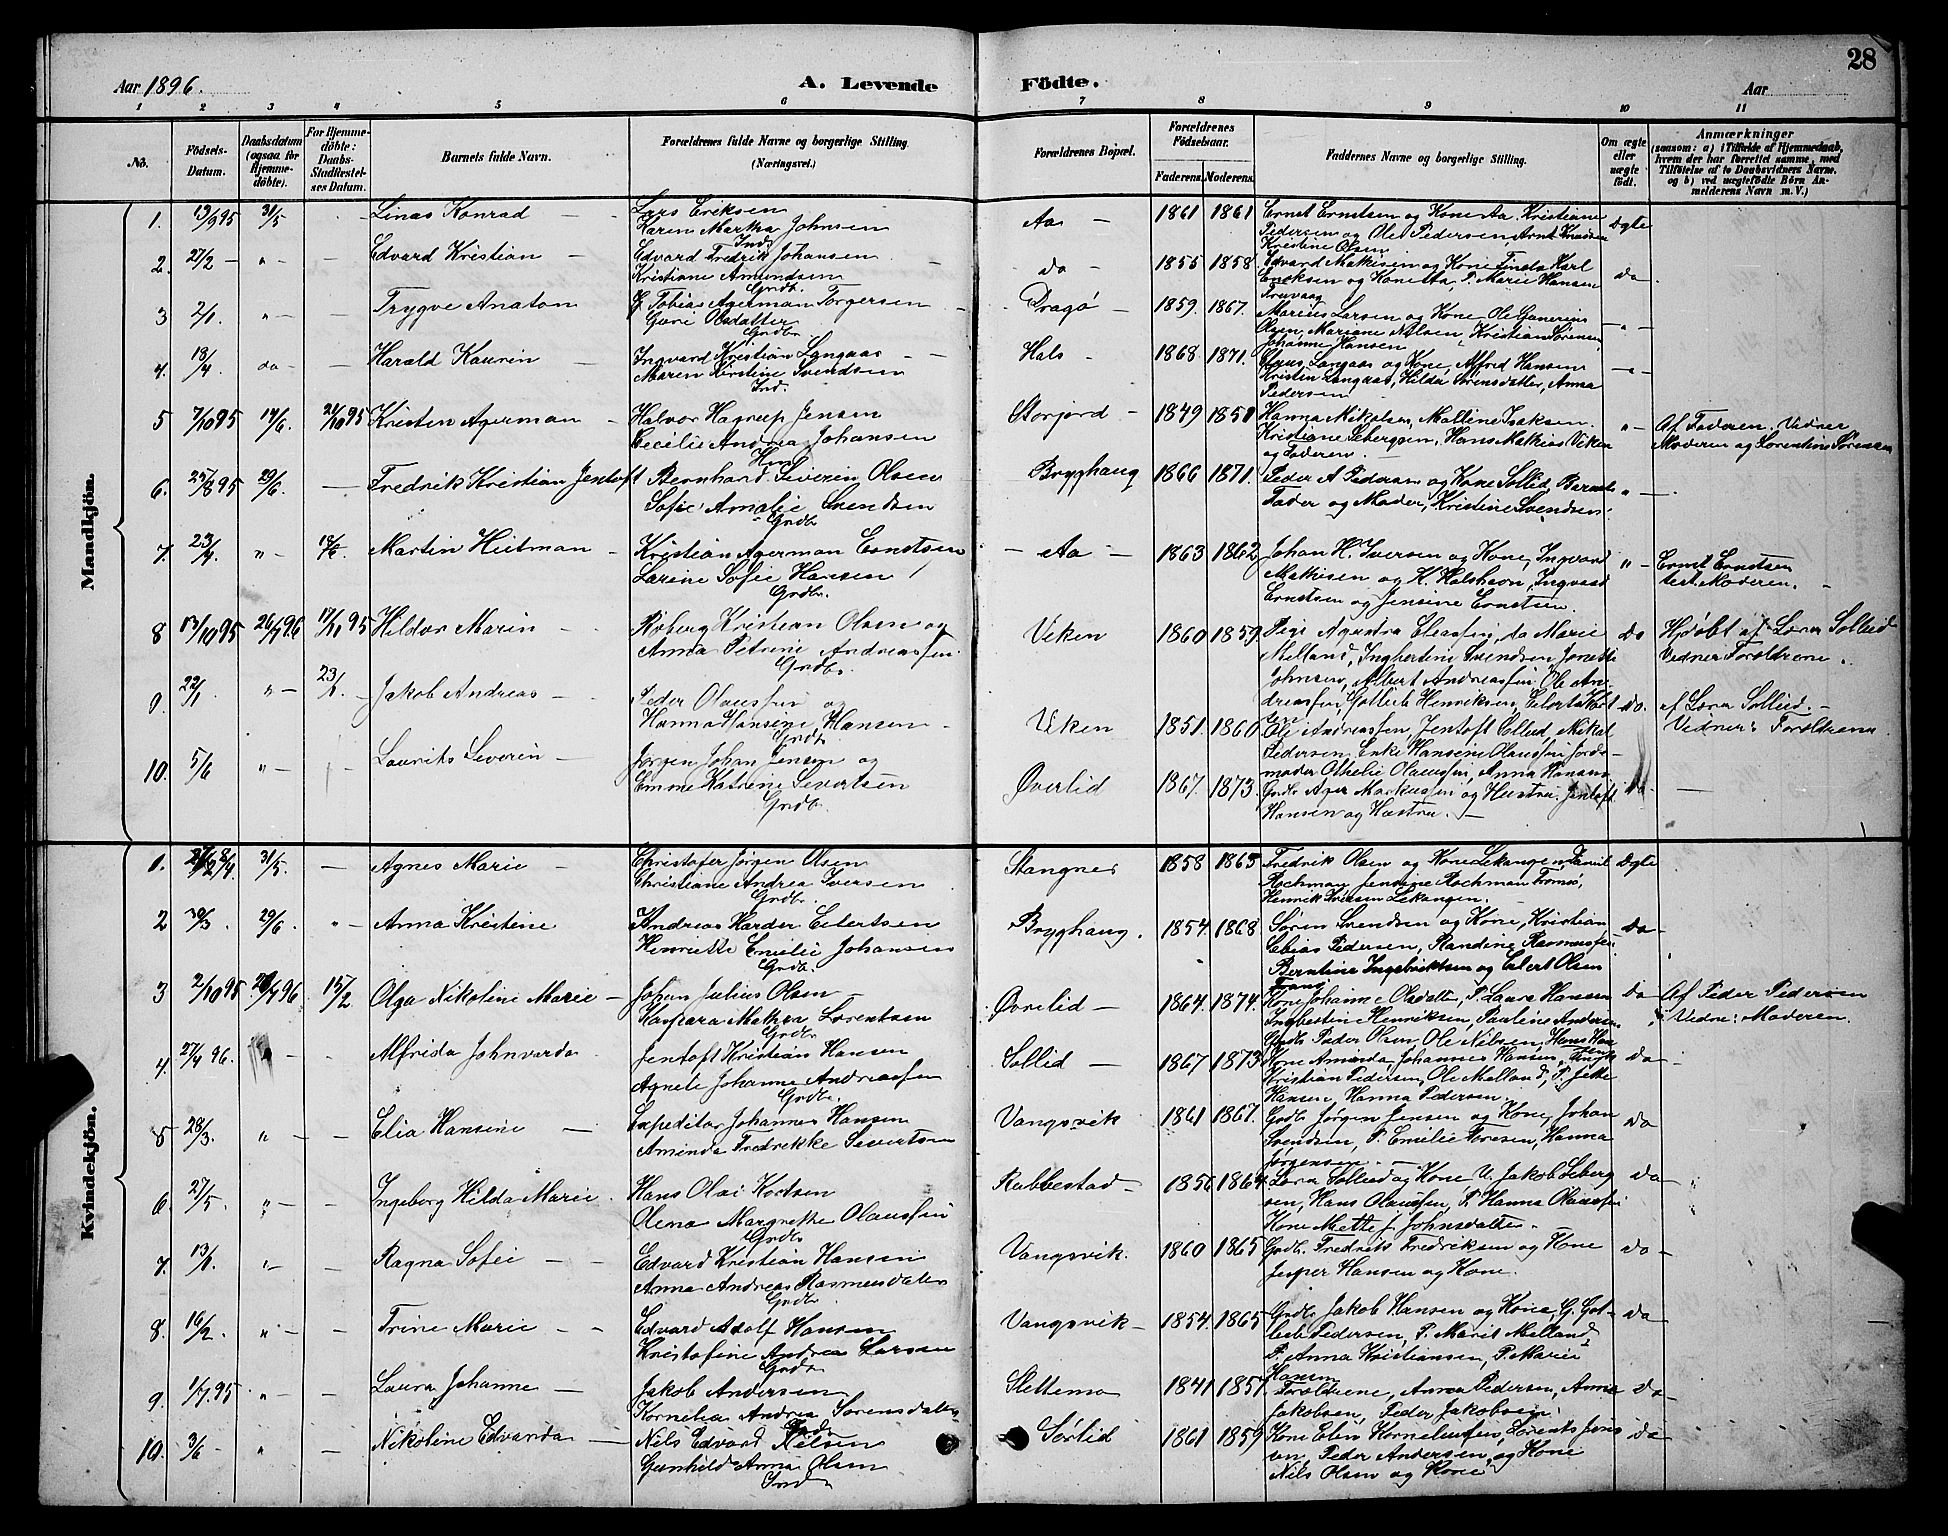 28
Aar 1896.
A. Levende Födte.
Aar
1 2 3 4 5 6 7 8 9 10 11
No.
Födsels-Datum.
Daabsdatum (ogsaa for Hjemmedöbte).
For Hjemmedöbte: Daabs-Stadfæstelses Datum.
Barnets fulde Navn.
Forældrenes fulde Navne og borgerlige Stilling. (Næringsvei.)
Forældrenes Bopæl.
Forældrenes Födselsaar.
Faderens. Moderens.
Faddernes Navne og borgerlige Stilling.
Om ægte eller uægte födt.
Anmærkninger
(saasom: a) i Tilfælde af Hjemmedaab, hvem der har forrettet samme, med Tilföielse af to Daabsvidners Navne, og b) ved uægtefödte Börn Anmelderens Navn m. V.)
Mandkjön.
1. 13/9 95 31/5 Linas Konrad
Lars Eriksen
Karen Martha Johnsen
Ind.
Aa 1861 1861
Ernst Erntsen og Kone Aa, Kristiane
Pedersen og Ole Pedersen, Arnt Knudsen
Kristine Olsen
Ægte
2. 27/2 " Edvard Kristian
Edvard Fredrik Johansen
Kristiane Amundsen
Grdb.
do 1855 1858
Edvard Mathisen og Kone
Enoksen og Kone Aa, P. Marie Hansen
do
3 2/1 " Trygve Anaton
Tobias Agerman Torgersen
Guri Olsdatter
Grdbr
Dragø 1859 1867.
Marius Larsen og Kone, Ole
Olsen, Mariane Nilsen, Kristian Sörensen,
Johanne Hansen
"
4. 18/4 do Harald Kaurin
Ingvard Kristian Langaas
Maren Kirstine Svendsen
Ind.
Hals 1868 1871.
Langaas og Kone, Alfred Hansen
Kristen Langaas, Hilda Sörensdatter, Anna
Pedersen
"
5 7/10 95 14/6. 21/10 95 Kristen Agerman
Halvor Hagrup Jensen
Cecilie Andrea Johansen
Storjord 1849 1851
Hanna Nikolsen, Malline Isaksen,
Kristiane Sebergsen, Hans Mathias Viken
og Faderen.
"
Af Faderen. Vidner
Moderen og Lorentine Sörensen
6. 25/8 95 29/6. Fredrik Kristian Jentoft
Bernhard Severin Olsen
Sofie Amalie Svendsen
Grdb
Brygghaug 1866 1871.
Peder A Pedersen og Kone Sollid, Barnets
Fader og Moder, Kristine Svendsen.
"
7. 23/4 " 18/6. Martin Hitman
Kristian Agerman Erntsen
Larine Sofie Hansen
Grdbr.
Aa 1863 1862
Johan H. Iversen og Kone, Ingvard
Mathisen og K. Halshavn, Ingvard
Erntsen og Jensine Erntsen.
"
Ernst Erntsen
test. Moderen.
8 13/10 95 26/7 96 17/11 95 Hildor Marin
Roberg Kristian Olsen og
Anna Petrine Andreassen.
Grdb.
Viken 1860 1859.
Pige Agustra Eliassen, do Marie
Melland, Ingbertine Svendsen, Jonette
Johnsen, Albert Andreassen, Ole An-
dreassen, Gotlieb Henriksen, Eilert
Do
Hjdöbt af Lars Sollid
Vidner Foreldrene.
9. 22/1 " 23/1. Jakob Andreas
Peder Olaussen og
Hanna Hansine Hansen
Grdb
Viken 1851. 1860
Ole Andreassen, Jentoft Ellud, Mikal
Pedersen, Enke Hansine Olaussen, Jorde-
moder Othelie Olaussen, Anna Hansen
do
af Lars Sollid.
Vidner: Foreldrene
10. 5/6 " Laurits Severin
Jørgen Johan Jensen og
Emme Katrine Sivertsen
Grdb.
Øverlid 1867. 1873.
Grdb Ager Markussen og Hustru, Jentoft
Hansen og Hustru.
Do
Kvindekjön.
1. 31/5. Agnes Marie
Christofer Jørgen Olsen
Christiane Andrea Iversen
Grdb.
Stangnes 1858 1863
Fredrik Olsen og Kone Lekangen, Daniel
Rochman, Jensine Rochman Tromsö,
Henrik Iversen Lekangen.
Ægte
2 30/3. 29/6 Anna Kristine
Andreas Harder Eilertsen
Henriette Emilie Johansen
Grdb.
Brygghaug. 1854. 1868
Sören Svendsen og Kone, Kristian
Pedersen, Randine Rasmussen
Berntine Ingebriktsen og Eilert Olsen
Do
3 2/10 95 26/7 96 15/2 Olga Nikoline Marie
Johan Julius Olsen
Kaspara Mathea Lorentsen
Grdb
Øvrelid 1864. 1874.
Kone Johanne Olsdatt., P. Laura Hansen
Ingbertine Henriksen, Pauline Andersen
Grdb Peder Olsen, Ole Nilsen, Hans Han-
sen
Do
Af Peder Pedersen
Vidne: Moderen.
4. 27/4 96. " Alfrida Johnvarda
Jentoft Kristian Hansen
Agnete Johanne Andreassen
Grdb.
Sollid 1867 1873
Kone Amanda, Johannes Hansen,
Kristian Pedersen, Ole Melland, P. Jette
Hansen, Hanna Pedersen.
Do
5 28/3. " Elia Hansine
Expeditør Johannes Hansen
Aminda Fredrikke Sivertsen
Vangsvik 1861 1867.
Grdb. Jørgen Jensen og Kone, Johan
Svendsen, P. Emilie Toresen, Hanna
Jørgensen.
Do
6. 27/5. " Ingeborg Hilda Marie
Hans Olai Kortsen
Olena Margrethe Olaussen
Grdb
Rubbestad 1856 1864
Lars Sollid og Kone, U. Jakob Seberg
sen, Hans Olaussen, P. Hanna Olaussen
Kone Mette J. Johnsdatter.
Do
7. 13/1. " Ragna Sofie
Edvard Kristian Hansen
Anna Andreas Rasmusdatter
Grdb.
Vangsvik. 1860 1865
Grdb. Fredrik Fredriksen og Kone
Jesper Hansen og Kone.
Do
8. 16/2. " Trine Marie
Edvard Adolf Hansen
Kristofine Andrea Larsen
Grdb
Vangsvik 1854. 1865
Grdb. Jakob Hansen og Kone, G. Got-
lieb Pedersen, P. Marit Melland,
P. Anna Kristiansen, P. Marie
Hansen
Do
9. 1/7. 95 " Laura Johanne
Jakob Andersen
Kornelia Andrea Sörensdatter
Ind.
Slettemo 1841 1851.
Foreldrene, Anna Pedersen, Anna
Jakobsen, Peder Jakobsen.
Do
10. 3/6 " Nikoline Edvarda
Nils Edvard Nilsen
Gunhild Anna Olsen
Ind
Sörlid 1861 1859
Kone Elen Korneliussen, Lorents Jens
sen, Peder Andersen og Kone
Nils Olsen og Kone
Do